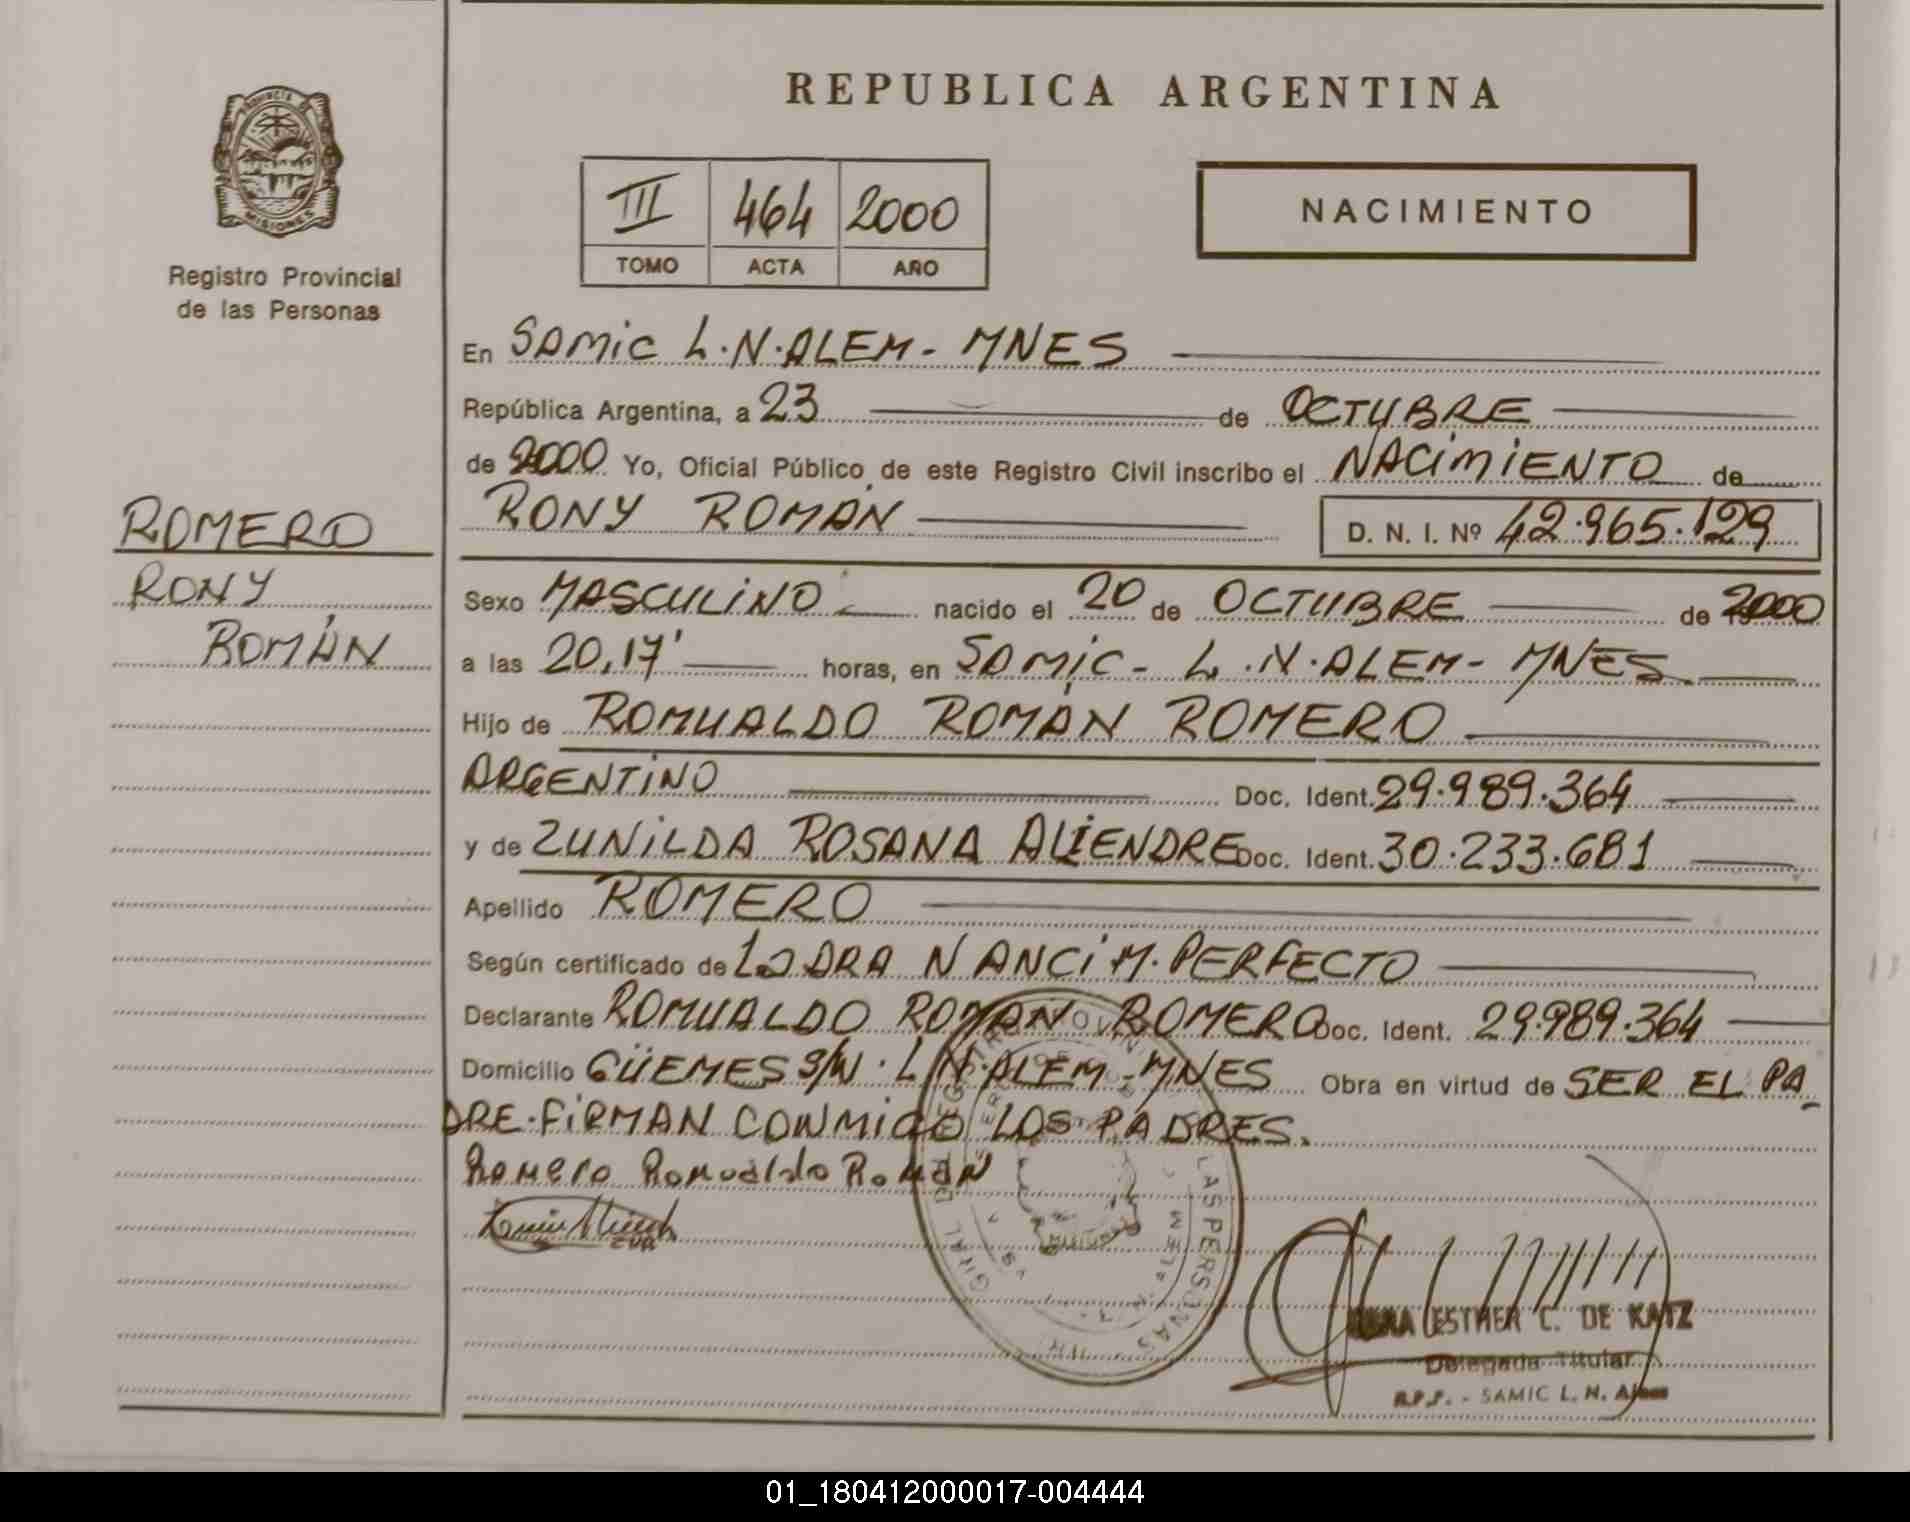 REPUBLICA ARGENTINA
PROVINCIA DE
MISIONES
Registro Provincial
de las Personas
III 464 2000
TOMO ACTA AÑO
NACIMIENTO
En SAMIC L.N.ALEM- MNES
República Argentina, a 23 de OCTUBRE
de 2000 Yo, Oficial Público de este Registro Civil inscribo el NACIMIENTO de
RONY ROMÁN D. N. I. Nº 42.965.129
ROMERO
RONY
ROMÁN
Sexo MASCULINO nacido el 20 de OCTUBRE de 2000
a las 20,17' horas, en SAMIC- L.N.ALEM- MNES
Hijo de ROMUALDO ROMÁN ROMERO
ARGENTINO Doc. Ident. 29.989.364
y de ZUNILDA ROSANA ALIENDRE Doc. Ident. 30.233.681
Apellido ROMERO
Según certificado de NANCI M. PERFECTO
Declarante ROMUALDO ROMAN ROMERO Doc. Ident. 29.989.364
Domicilio GÜEMES S/N. L.N.ALEM-MNES Obra en virtud de SER EL PA-
DRE.FIRMAN CONMIGO LOS PADRES.
Romero Romualdo Roman
LAS PERSONAS
ESTHER C. DE KATZ
Delegada Titular
R.P.P. - SAMIC L. N. Alem
01_180412000017-004444